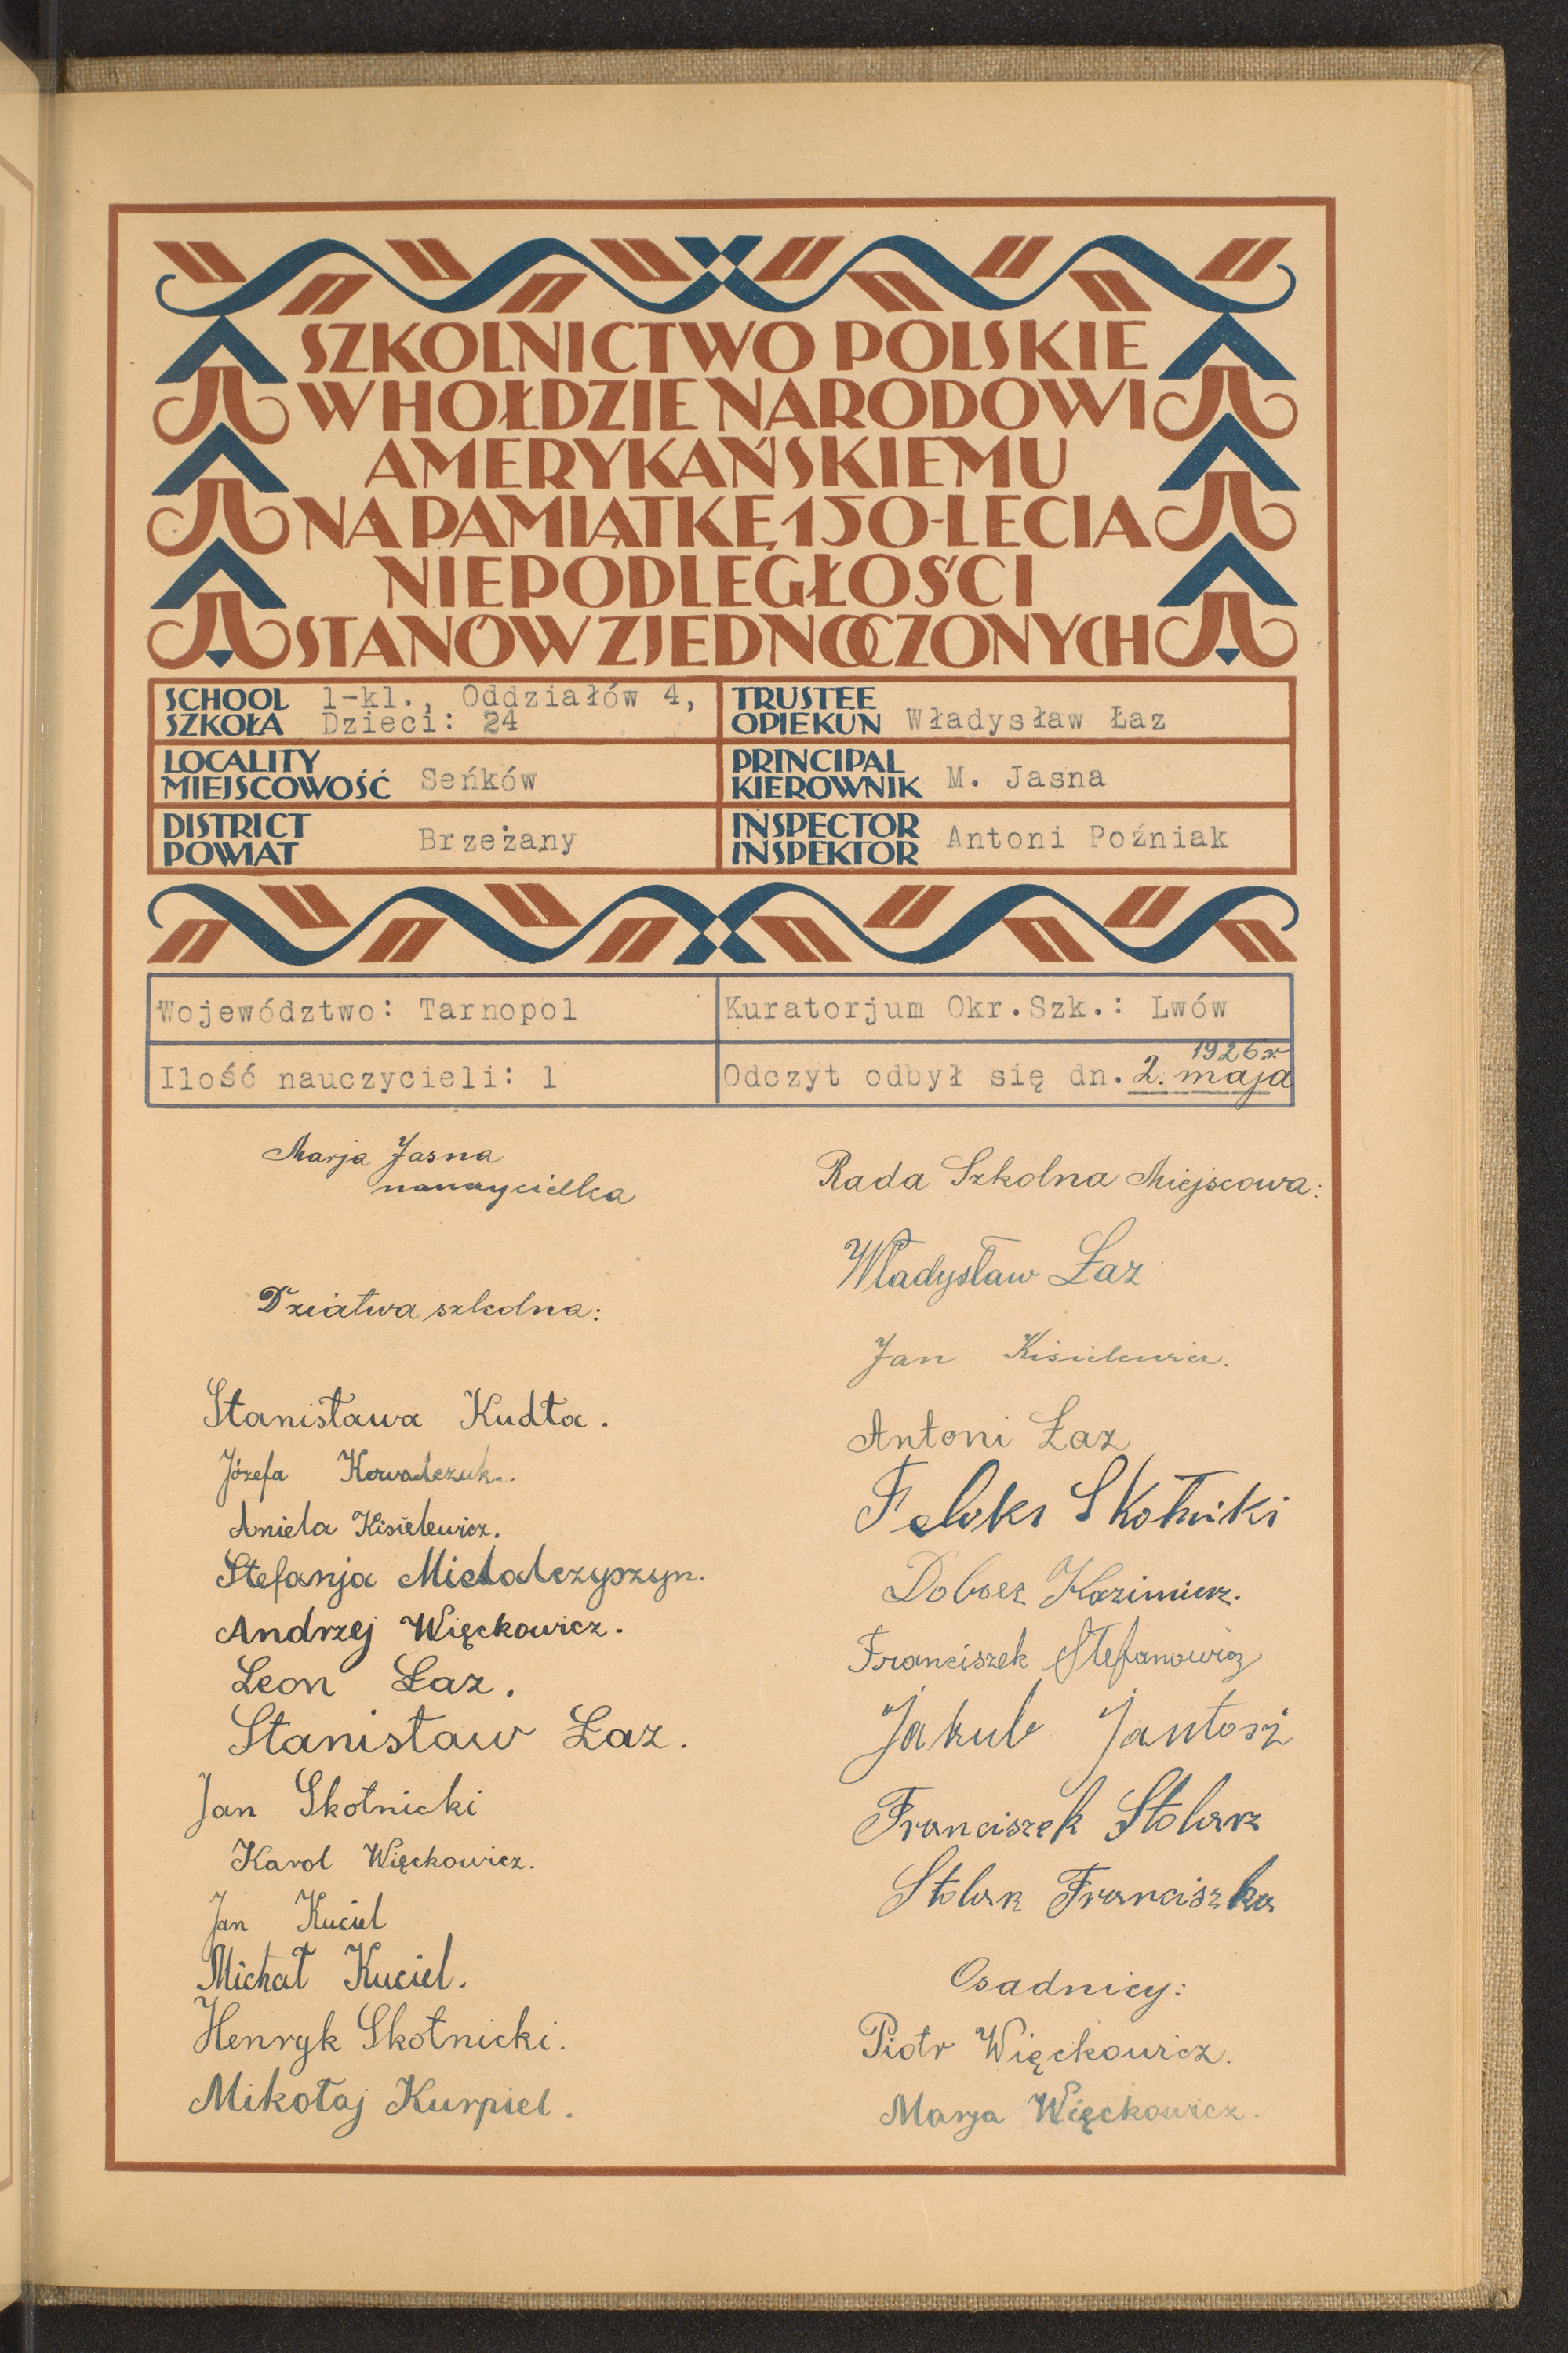 SZKOLNICTWO POLSKIE
W HOŁDZIE NARODOWI
AMERYKAŃSKIEMU
NA PAMIĄTKĘ 150-LECIA
NIEPODLEGŁOŚCI
STANÓW ZJEDNOCZONYCH
SCHOOL
SZKOŁA
1-kl., Oddziałów 4,
Dzieci: 24
TRUSTEE
OPIEKUN Władysław Łaz
LOCALITY
MIEJSCOWOŚĆ Seńków
PRINCIPAL
KIEROWNIK M. Jasna
DISTRICT
POWIAT Brzeżany
INSPECTOR
INSPEKTOR Antoni Poźniak
Województwo: Tarnopol
Kuratorjum Okr.Szk.: Lwów
Ilość nauczycieli: 1
Odczyt odbył się dn. 2. maja 1926 r
Marja Jasna
nauczycielka
Dziatwa szkolna:
Stanisława Kudła.
Józefa Kowalczuk..
Aniela Kisielewicz.
Stefanja Michalczyszyn.
Andrzej Więckowicz.
Leon Łaz.
Stanisław Łaz.
Jan Skotnicki
Karol Więckowicz.
Jan Kuciel
Michał Kuciel.
Henryk Skotnicki.
Mikołaj Kurpiel.
Rada Szkolna Miejscowa:
Władysław Łaz
Jan Kisielewicz.
Antoni Łaz
Kazimierz.
Franciszek Stefanowicz
Jakub
Franciszek Stolarz
Stolarz Franciszka
Osadnicy:
Piotr Więckowicz.
Marja Więckowicz.